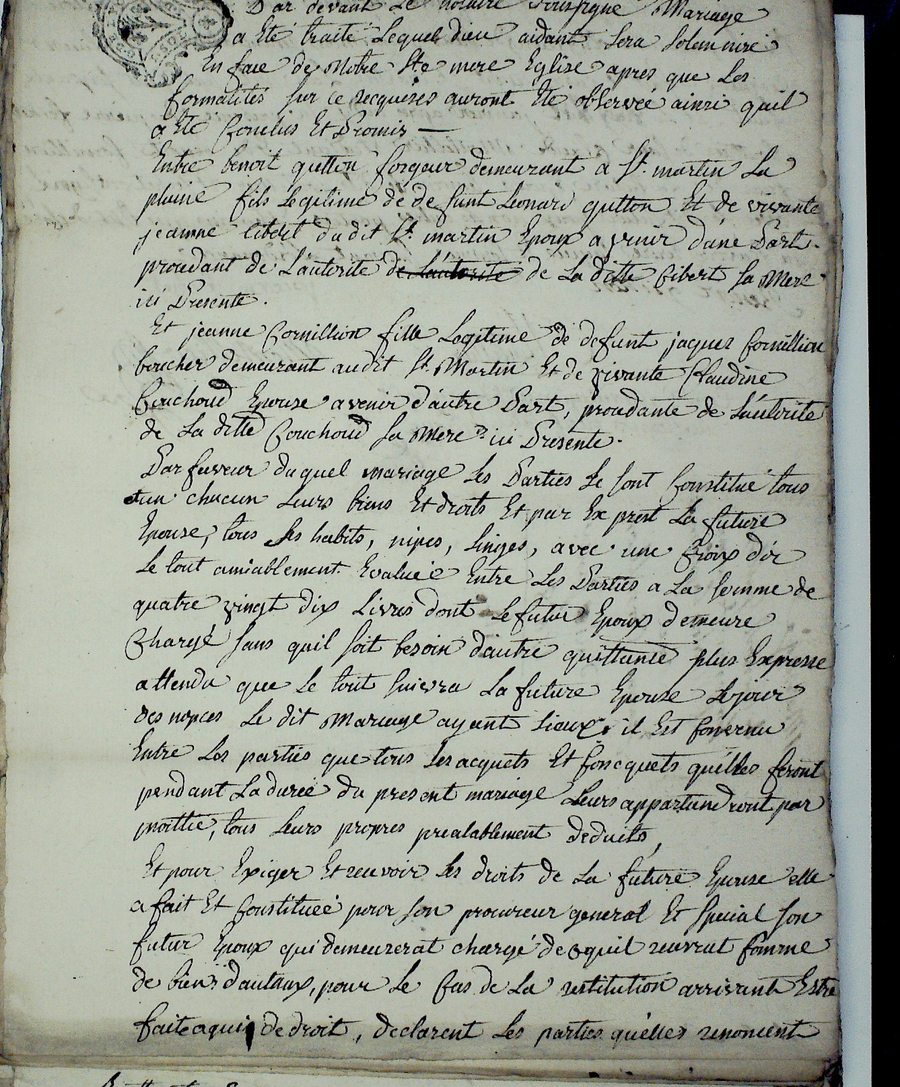 Par devant Le notaire soussigné Mariage
a Eté traité Lequel dieu aidant sera solemnisé
En face de Notre Ste mere Eglise apres que Les
formalités sur ce requises auront Eté observéé ainsi quil
a Eté Conclus Et Promis —
Entre benoit gutton forgeur demeurant a St. martin La
plaine fils Legitime de defunt Leonard gutton Et de vivante
jeanne Cibert dudit St. martin Epoux a venir d'une Part
procdant de L'autorité de L'autorité de La ditte Cibert sa Mere
ici Presente.
Et jeanne Cornillion fille Legitime de defunt jacques Cornillion
boucher demeurant audit St. Martin Et de vivante Claudine
Couchoud Epouse a venir d'autre Part, procdante de L'autorité
de La ditte Couchoud sa Mere ici Presente.
Par faveur duquel mariage Les Parties Se sont Constitué tous
un chacun Leurs biens Et droits Et par Exprest La future
Epouse, tous ses habits, nipes, Linges, avec une Croix d'or
Le tout amiablement Evaluéé Entre Les Parties a La somme de
quatre vingt dix Livres dont Le futur Epoux demeure
Chargé sans quil soit besoin d'autre quittance plus Expresse
attendu que Le tout suivra La future Epouse Lejour
des nopces Le dit Mariage ayant Lieux, il Est Convenu
Entre Les parties que tous Les acquets Et Concquets quélles feront
pendant La durée du present mariage Leurs appartiendront par
moittié, tous Leurs propres prealablement deduits,
Et pour Exiger Et recevoir Les droits de La future Epouse elle
a fait Et Constituéé pour son procureur general Et special son
futur Epoux qui demeurerat chargé de cequil recevrat Comme
de bien dautaux, pour Le Cas de La restitution arrivant Estre
faite a qui de droit, declarent Les parties quélles renoncent